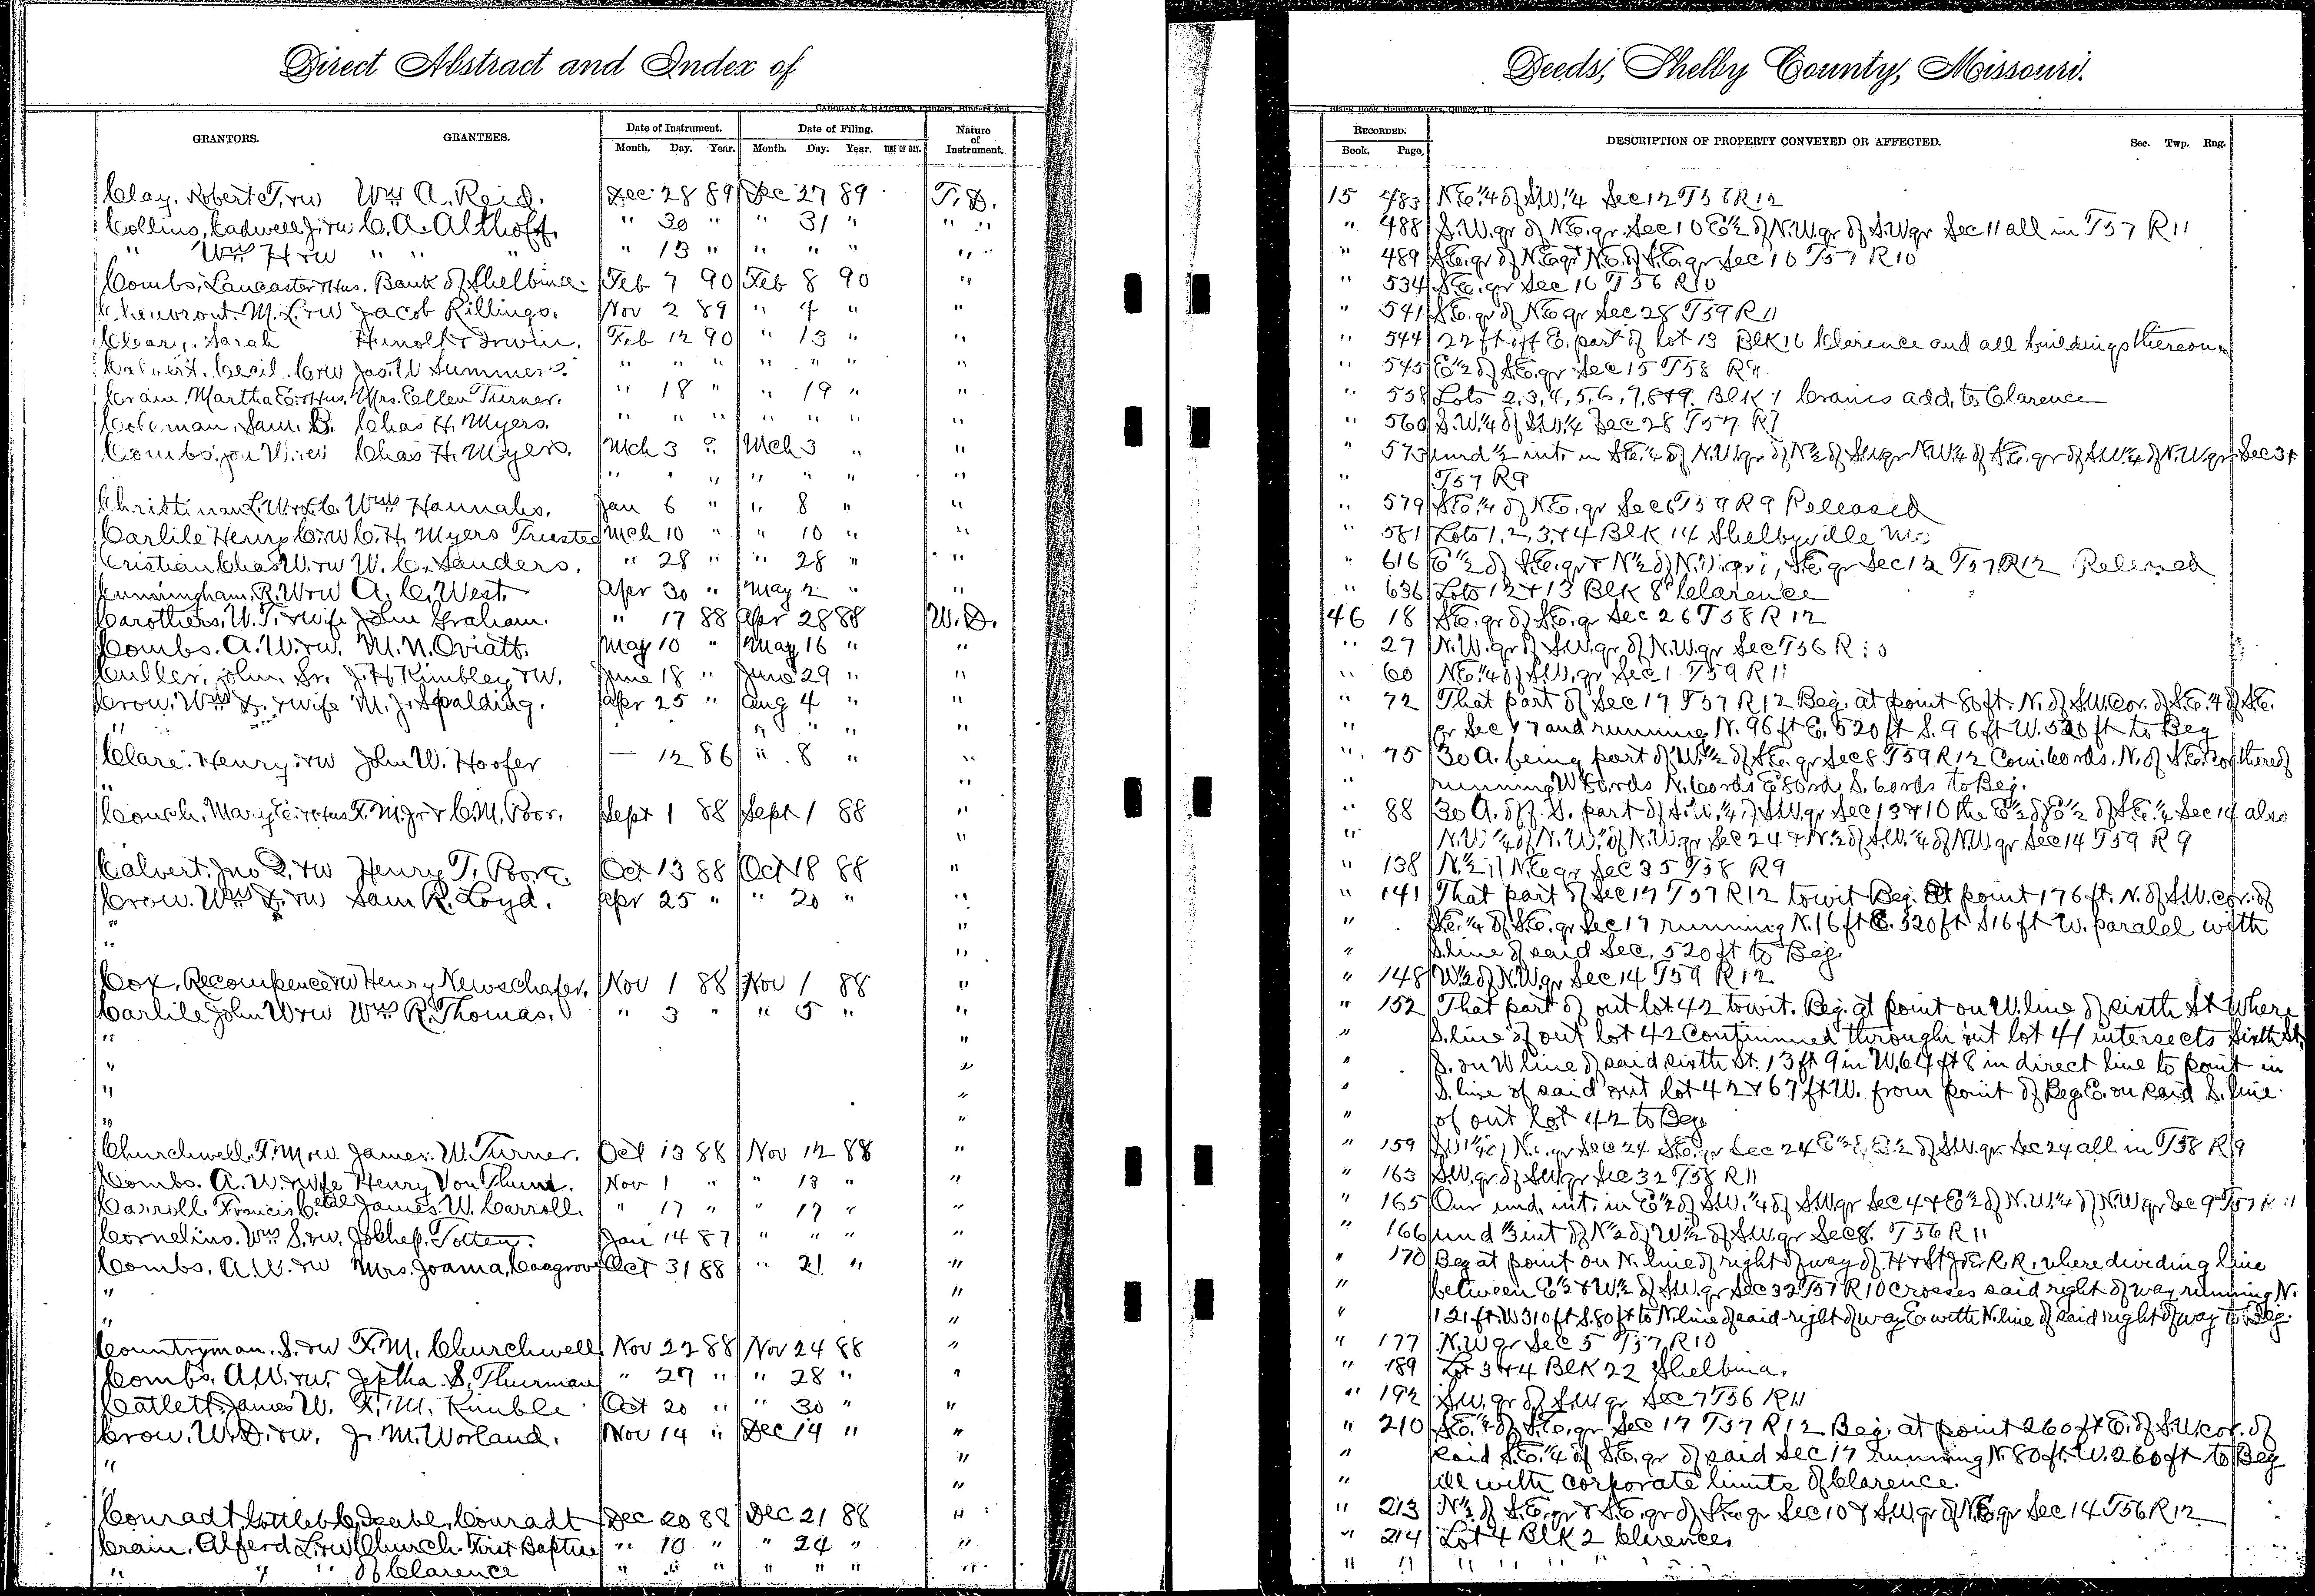 Direct Abstract and Index of
Deeds, Shelby County, Missouri.
CADOGAN & HATCHER, Printers, Binders and
Blank Book Manufacturers, Quincy, Ill.
GRANTORS. GRANTEES. Date of Instrument. Month. Day. Year. Date of Filing. Month. Day. Year. TIME OF DAY. Nature of Instrument. RECORDED. Book. Page. DESCRIPTION OF PROPERTY CONVEYED OR AFFECTED. Sec. Twp. Rng.
Clay, Robert T. rw Wm A. Reid. Dec 28 89 Dec 27 89 T.D. 15 483 N.E. 1/4 of S.W. 1/4 Sec 12 T56 R12
Collins, Cadwell J. rw C. A. Althoff. " 30 " " 31 " " " " 488 S.W. qr of N.E. qr. Sec 10 E 1/2 of N.W. qr of S.W qr Sec 11 all in T57 R11
" Wm H rw " " " " 13 " " " " " " 489 S.E. qr of N.E. qr N.E. of S.E. qr Sec 16 T57 R10
Combs, Lancaster & Hus. Bank of Shelbina. Feb 7 90 Feb 8 90 " " 534 S.E. qr Sec 16 T56 R10
M. L. rw Jacob Rillings. Nov 2 89 " 4 " " " 541 S.E. qr of N.E. qr Sec 28 T59 R11
Cleary, Sarah Feb 12 90 " 13 " " " 544 22 ft off E. part of lot 13 Blk 16 Clarence and all buildings thereon
Calvert, Cecil C. rw Jas. W Summers. " " " " " " " " 545 E 1/2 of S.E. qr Sec 15 T58 R9
Crain, Martha E. & Hus. Mrs. Ellen Turner. " 18 " " 19 " " " 558 Lots 2, 3, 4, 5, 6, 7, 8 & 9. Blk 1 Crains add. to Clarence
Coleman, Sam. B. Chas H. Myers. " " " " " " " " 560 S.W. 1/4 of S.W. 1/4 Sec 28 T57 R9
Combs, Jon W. rw Chas H. Myers. Mch 3 " Mch 3 " " " 573 und 1/2 int. in S.E. 1/4 of N.W. qr of N 1/2 of S.W qr N.W. 1/4 of S.E. qr of S.W. 1/4 of N.W. qr. Sec 31
" " " " " " " T57 R9
L. W. Wm Hannahs. Jan 6 " " 8 " " " 579 S.E. 1/4 of N.E. qr Sec 6 T59 R9 Released
Carlile Henry C. rw C. H. Myers Trustee Mch 10 " " 10 " " " 581 Lots 1, 2, 3, & 4 Blk 14 Shelbyville Mo
Cristian Chas W. rw W. C. Sanders. " 28 " " 28 " " " 616 E 1/2 of S.E. qr & N 1/2 of N.W. qr S.E. qr Sec 12 T57 R12 Released
Cunningham, R. W rw A. C. West. Apr 30 " May 2 " " " 636 Lots 12 & 13 Blk 8 Clarence
Carothers, W. T. & wife John Graham. " 17 88 Apr 28 88 W.D. 46 18 S.E. qr of S.E. q Sec 26 T58 R12
Combs. A. W. rw. M. N. Oviatt. May 10 " May 16 " " " 27 N.W. qr of S.W. qr of N.W. qr Sec T56 R10
Culler, John, Sr. J. H Kimbley rw. June 18 " June 29 " " " 60 N.E. 1/4 of S.W. qr Sec 1 T59 R11
Crow, Wm D. & wife M. J. Spalding. Apr 25 " Aug 4 " " " 72 That part of Sec 17 T57 R12 Beg. at point 80 ft. N. of S.W. Cor. of S.E. 1/4 of S.E.
" " " " " " qr Sec 17 and running N. 96 ft E. 520 ft S. 96 ft W. 520 ft to Beg
Clare, Henry rw John W. Hoofer — 12 86 " 8 " " " 75 30 A. being part of W. 1/2 of S.E. qr Sec 8 T59 R12 Com. 60 rds. N. of S.E. cor thereof
" " " running W 80 rds N. 60 rds E 80 rds S. 60 rds to Beg.
Couch, Mary E. & Hus F. M. Jr & C. M. Poor. Sept 1 88 Sept 1 88 " " 88 30 A. off S. part of S.W. 1/4 of S.W. qr Sec 13 & 10 the E 1/2 of E 1/2 of S.E. 1/4 Sec 14 also
" " N.W. 1/4 of N.W. of N.W qr Sec 24 & N 1/2 of S.W. 1/4 of N.W qr Sec 14 T59 R9
Calvert, Jno Q. rw Henry T. Poore. Oct 13 88 Oct 18 88 " " 138 N 1/2 of N.E. qr Sec 35 T58 R9
Crow, Wm D. rw Sam R. Loyd. Apr 25 " " 20 " " " 141 That part of Sec 17 T57 R12 towit Beg. at point 176 ft. N. of S.W. cor. of
" " " S.E. 1/4 of S.E. qr Sec 17 running N. 16 ft E. 520 ft S 16 ft W. paralel with
" " " S. line of said Sec. 520 ft to Beg.
Cox, Recompence rw Henry Newschafer. Nov 1 88 Nov 1 88 " " 148 W 1/2 of N.W qr Sec 14 T59 R12
Carlile John W rw Wm R. Thomas. " 3 " " 5 " " " 152 That part of out lot 42 towit. Beg. at point on W. line of sixth St where
" " " S. line of out lot 42 Continued through out lot 41 intersects Sixth St.
" " " S. on W line of said sixth St. 13 ft 9 in W. 64 ft 8 in direct line to point in
" " " S. line of said out lot 42 & 67 ft W. from point of Beg. E. on said S. line
" " " of out lot 42 to Beg
Churchwell, F. M rw. James W. Turner. Oct 13 88 Nov 12 88 " " 159 Sec 24 S.E. qr Sec 24 E 1/2 of E 1/2 of S.W. qr. Sec 24 all in T58 R9
Combs. A. W & wife Henry Von Thunt. Nov 1 " " 13 " " " 163 S.W. qr of S.W. qr Sec 32 T58 R11
Carroll Francis C. et al James W. Carroll. " 17 " " 17 " " " 165 Our und. int. in E 1/2 of S.W. 1/4 of S.W. qr Sec 4 & E 1/2 of N.W. 1/4 of N.W qr Sec 9 T57 R11
Cornelius, Wm S. rw. Totten. Jan 14 87 " " " " " 166 und 1/3 int of N 1/2 of W 1/2 of S.W. qr Sec 8. T56 R11
Combs, A. W. rw Mrs. Joanna, Cosgrove Oct 31 88 " 21 " " " 170 Beg at point on N. line of right of way of H & St Joe R.R. where dividing line
" " " between E 1/2 & W 1/2 of S.W. qr Sec 32 T57 R10 crosses said right of way running N.
" " " 121 ft. W 310 ft S. 80 ft to N line of said right of way E. with N. line of said right of way to Beg.
Countryman, S. rw F. M. Churchwell Nov 22 88 Nov 24 88 " " 177 N.W qr Sec 5 T57 R10
Combs. A. W. rw. Jeptha S. Thurman " 27 " " 28 " " " 189 Lot 3 & 4 Blk 22 Shelbina.
Catlett, James W. F. M. Kimble Oct 20 " " 30 " " " 192 S.W. qr of S.W qr Sec 7 T56 R11
Crow. W. D. rw. J. M. Worland. Nov 14 " Dec 14 " " " 210 S.E. 1/4 of S.E. qr Sec 17 T57 R12 Beg. at point 260 ft E. of S.W. cor. of
" " " said S.E. 1/4 of S.E. qr of said Sec 17 running N. 80 ft. W. 260 ft to Beg
" " " with corporate limits of Clarence.
Conradt, Gottleb C. Conradt Dec 20 88 Dec 21 88 " " 213 N 1/2 of S.E. qr & S.E. qr of S.E. qr Sec 10 & S.W. qr of N.E. qr Sec 14 T56 R12
Crain, Alferd L. rw Church First Baptist " 10 " " 24 " " " 214 Lot 4 Blk 2 Clarence,
" " " of Clarence " " " " " " " " " " " " "